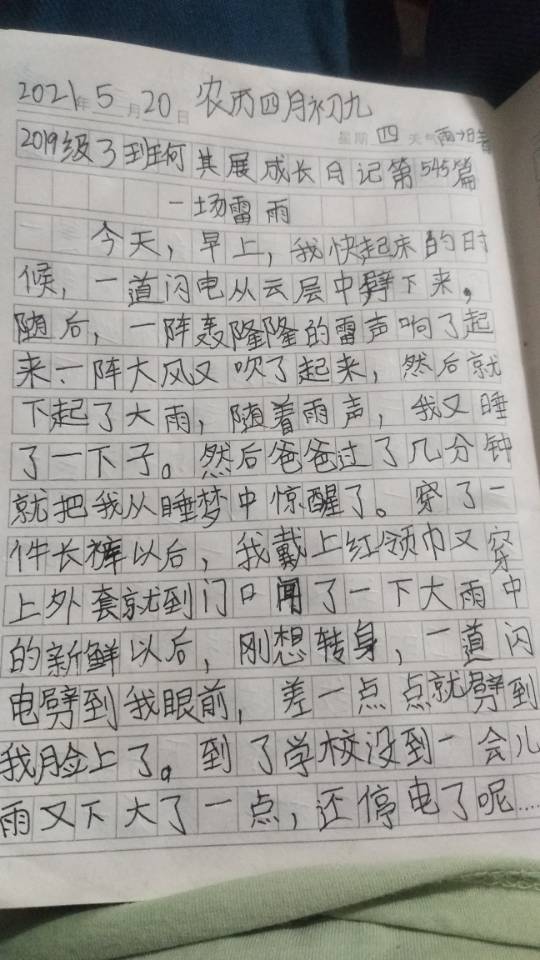 2021年5月20日 农历四月初九
星期四 天气雨+阴
2019级3班何其展成长日记第545篇
一场雷雨
今天，早上，我快起床的时
候，一道闪电从云层中劈下来，
随后，一阵轰隆隆的雷声响了起
来，一阵大风又吹了起来，然后就
下起了大雨，随着雨声，我又睡
了一下子。然后爸爸过了几分钟
就把我从睡梦中惊醒了。穿了一
件长裤以后，我戴上红领巾又穿
上外套就到门口闻了一下大雨中
的新鲜以后，刚想转身，一道闪
电劈到我眼前，差一点点就劈到
我脸上了。到了学校没到一会儿
雨又下大了一点，还停电了呢……